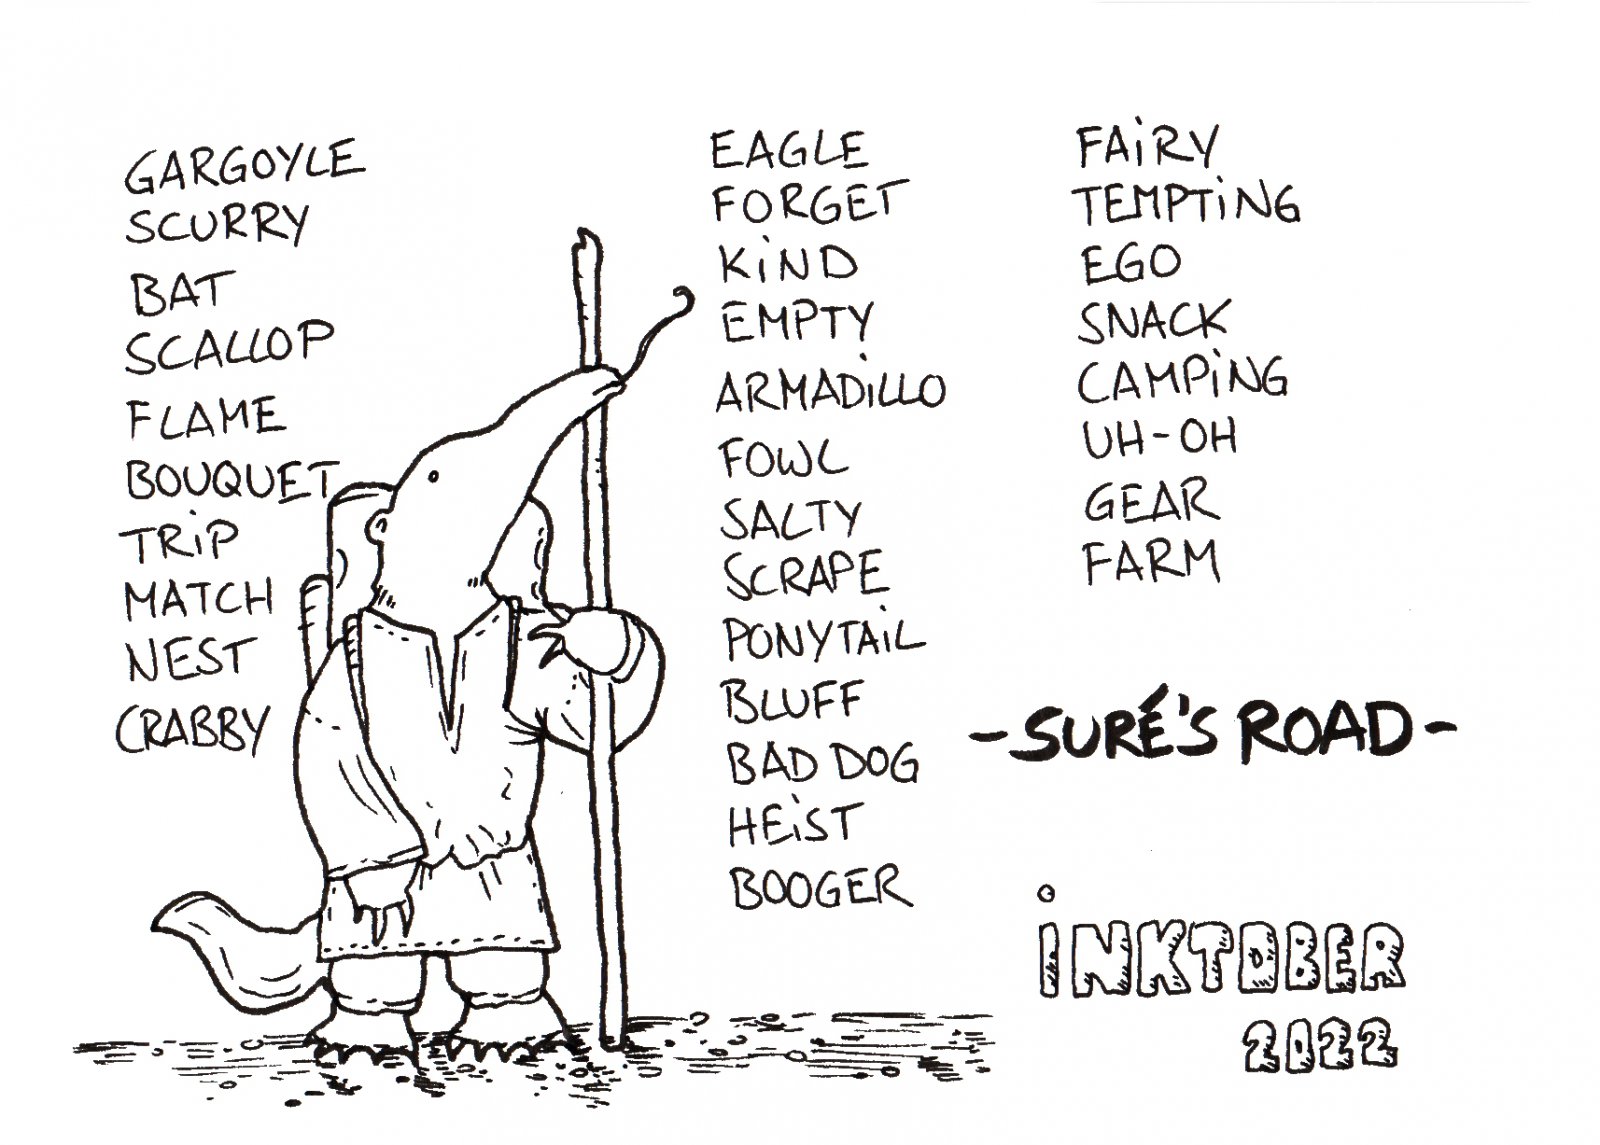 GARGOYLE
SCURRY
BAT
SCALLOP
FLAME
BOUQUET
TRiP
MATCH
NEST
CRABBY
EAGLE
FORGET
KiND
EMPTY
ARMADiLLO
FOWL
SALTY
SCRAPE
PONYTAiL
BLUFF
BAD DOG
HEiST
BOOGER
FAiRY
TEMPTiNG
EGO
SNACK
CAMPiNG
UH-OH
GEAR
FARM
-SURÉ'S ROAD-
iNKTOBER
2022